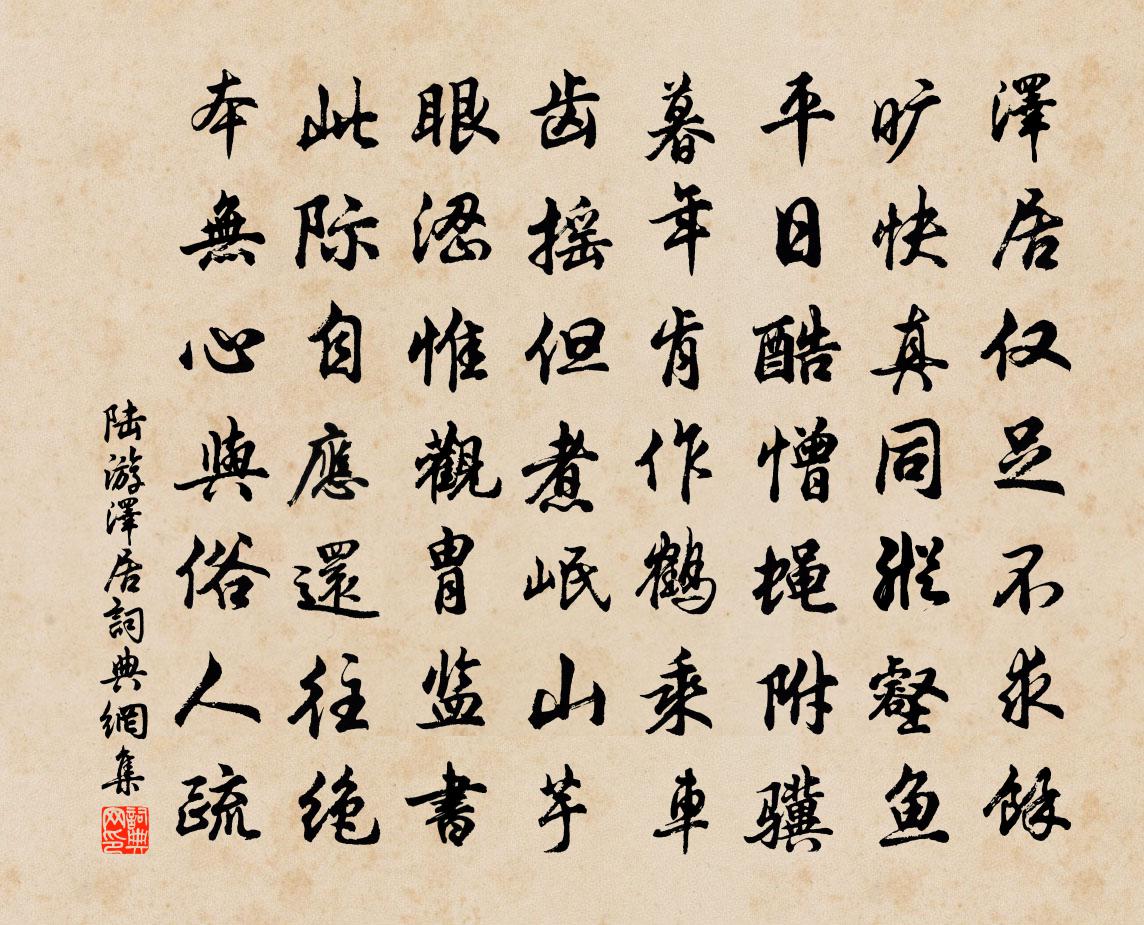 澤居仅足不求餘
旷快真同縱壑鱼
平日酷憎蝇附骥
暮年肯作鹤乘車
齿摇但煮岷山芋
眼涩惟觀胄监書
此际自應還往绝
本無心與俗人疏
陆游澤居詞典網集
詞典
网印